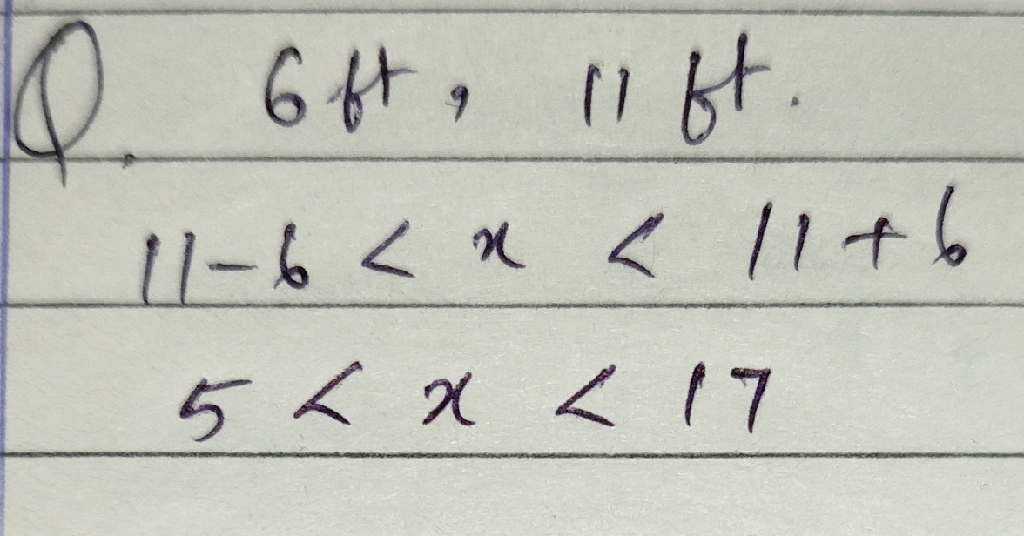 Q. 6 ft, 11 ft.
11-6 < x < 11 + 6
5 < x < 17